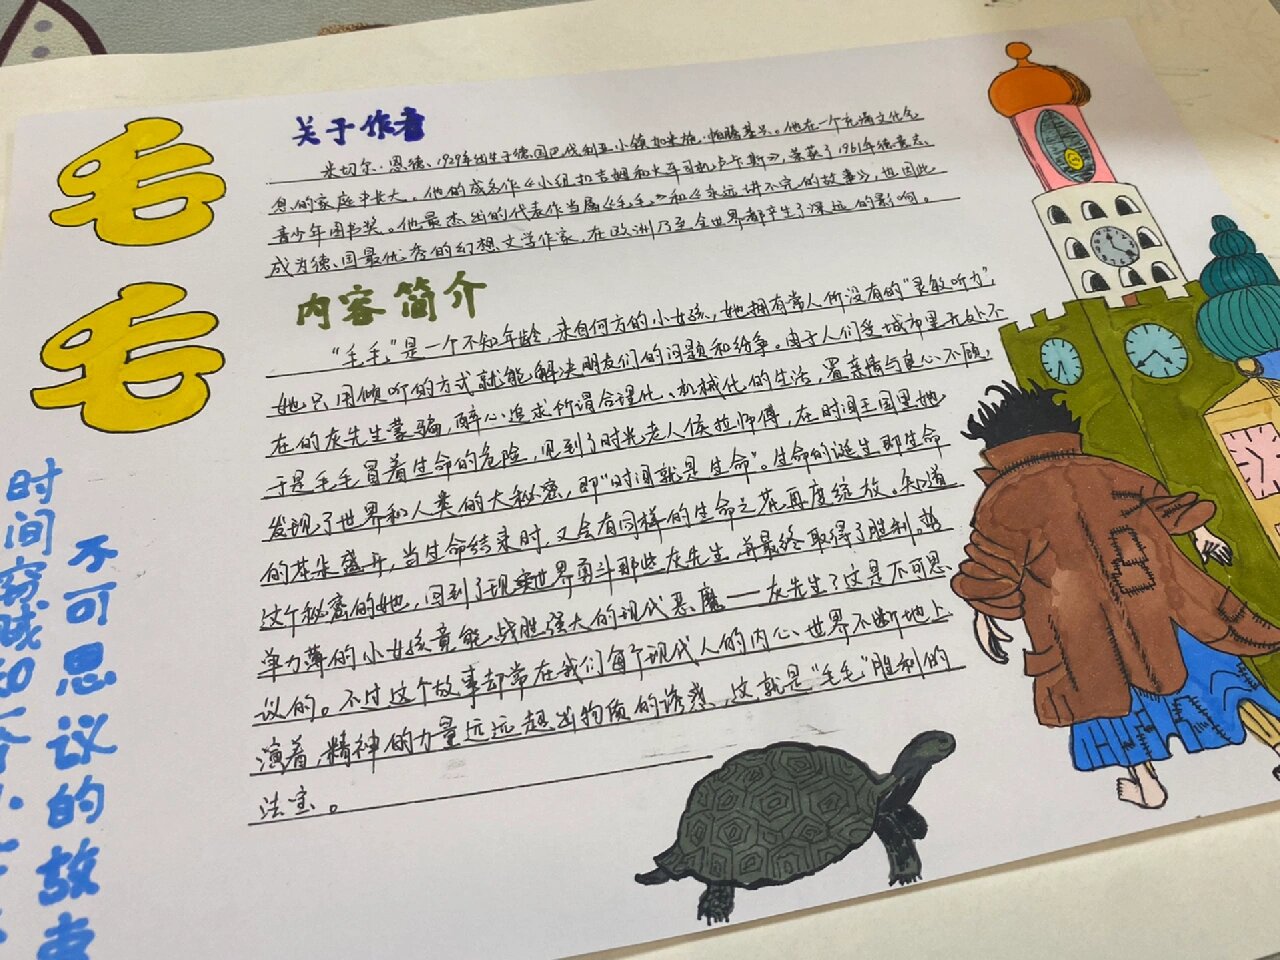 毛
毛
时间窃贼和一个小
不可思议的故事
关于作者
米切尔·恩德，1929年出生于德国巴伐利亚小镇加米施·帕腾基兴。他在一个充满文化气
息的家庭中长大。他的成名作《小纽扣吉姆和火车司机卢卡斯》，荣获了1961年德意志
青少年图书奖。他最杰出的代表作当属《毛毛》和《永远讲不完的故事》，也因此
成为德国最优秀的幻想文学作家，在欧洲乃至全世界都产生了深远的影响。
内容简介
“毛毛”是一个不知年龄，来自何方的小女孩，她拥有常人所没有的“灵敏听力”，
她只用倾听的方式就能解决朋友们的问题和纷争。由于人们受城市里无处不
在的灰先生蒙骗，醉心追求所谓合理化、机械化的生活，置亲情与良心不顾，
于是毛毛冒着生命的危险，见到了时光老人侯拉师傅，在时间王国里她
发现了世界和人类的大秘密，即“时间就是生命”。生命的诞生即生命
的花朵盛开，当生命结束时，又会有同样的生命之花再度绽放。知道
这个秘密的她，回到了现实世界勇斗那些灰先生，并最终取得了胜利，势
单力薄的小女孩竟能战胜强大的现代恶魔——灰先生？这是不可思
议的。不过这个故事却常在我们每个现代人的内心、世界不断地上
演着，精神的力量远远超出物质的诱惑，这就是“毛毛”胜利的
法宝。